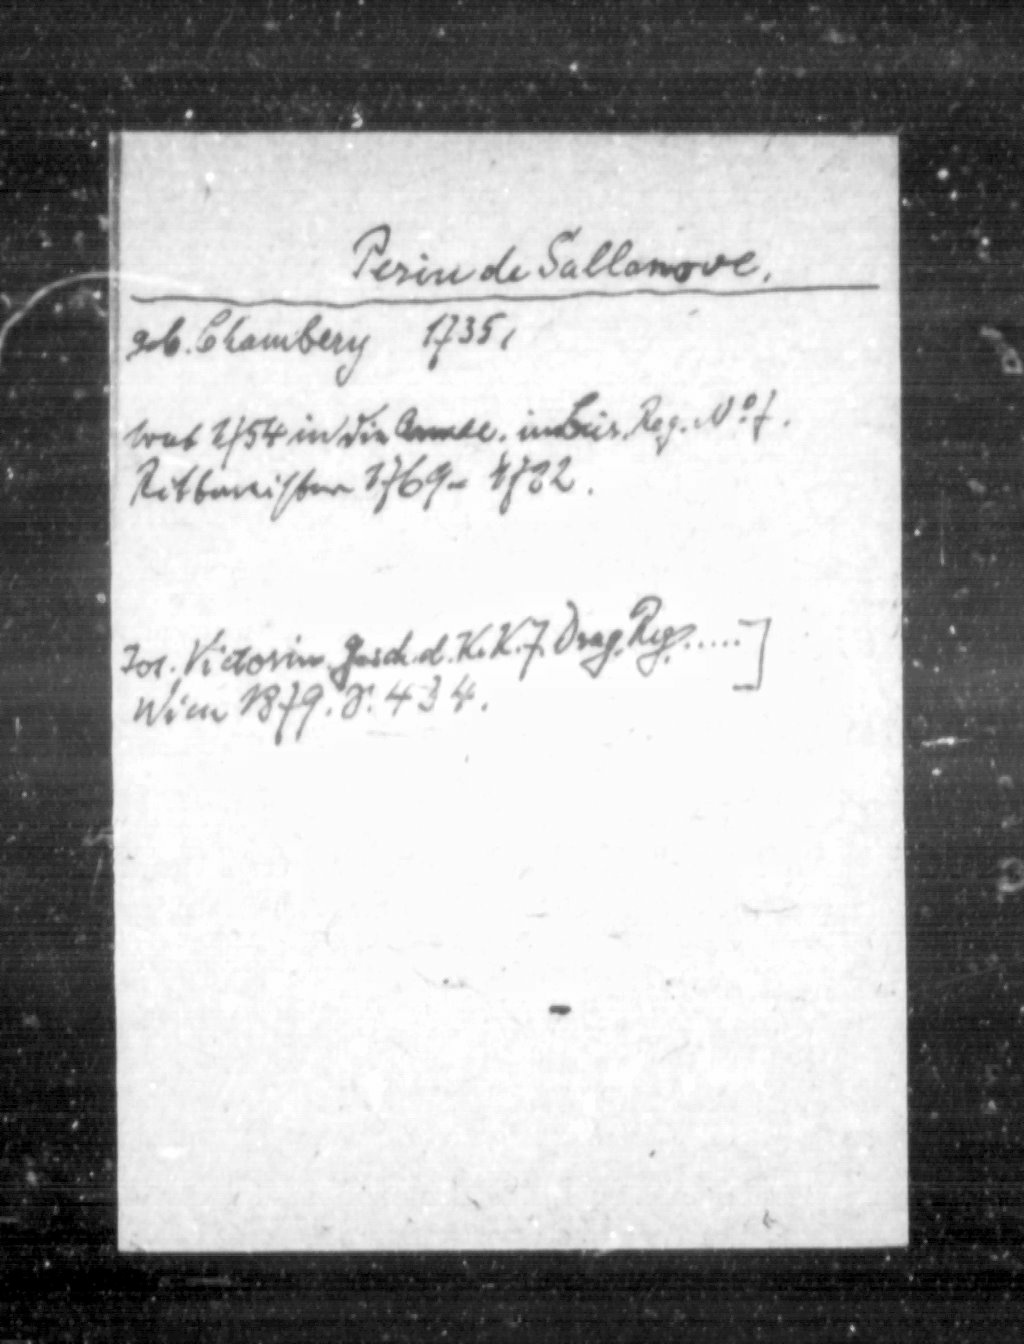 Perin de Sallanove.
geb. Chambery 1735,
trat 1754 in die Armee. im Kür. Reg. No. 7.
Rittmeister 1769 - 1782.
Jos. Victorin Gesch. d. K. K. 7. Drag. Reg. ..... ]
Wien 1879. S. 434.